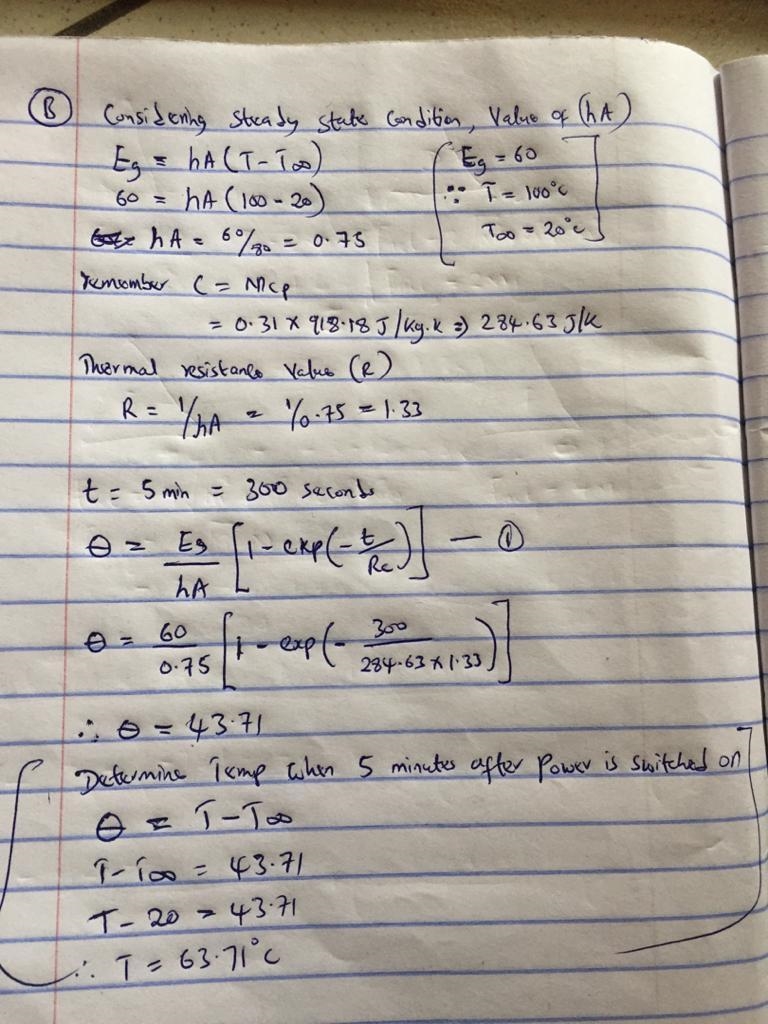 (B) Considering Steady state Condition, Value of (hA)
Eg = hA(T-T∞)
Eg = 60
60 = hA(100-20)
∵ T = 100°c
hA = 60/80 = 0.75
T∞ = 20°c
remember C = Mcp
= 0.31 x 918.18 J/kg.k => 284.63 J/k
Thermal resistance Value (R)
R = 1/hA = 1/0.75 = 1.33
t = 5 min = 300 seconds
θ = Eg/hA [1 - exp(-t/Rc)] — ①
θ = 60/0.75 [1 - exp(- 300/284.63 x 1.33)]
∴ θ = 43.71
Determine Temp when 5 minutes after power is switched on
θ = T-T∞
T-T∞ = 43.71
T-20 = 43.71
∴ T = 63.71°c